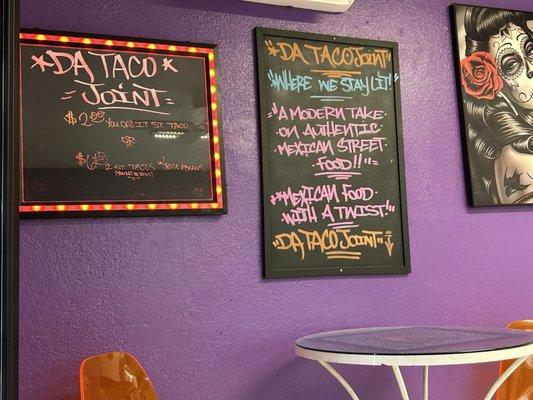 *DA TACO*
=JOINT=
$2.00 YOU CALL IT ST. TACO
OR
2 ST. TACOS W/ RICE & BEANS
*DA TACO JOINT*
"WHERE WE STAY LIT!"
"A MODERN TAKE
ON AUTHENTIC
MEXICAN STREET
FOOD!!"
*MEXICAN FOOD
WITH A TWIST!"
"DA TACO JOINT"